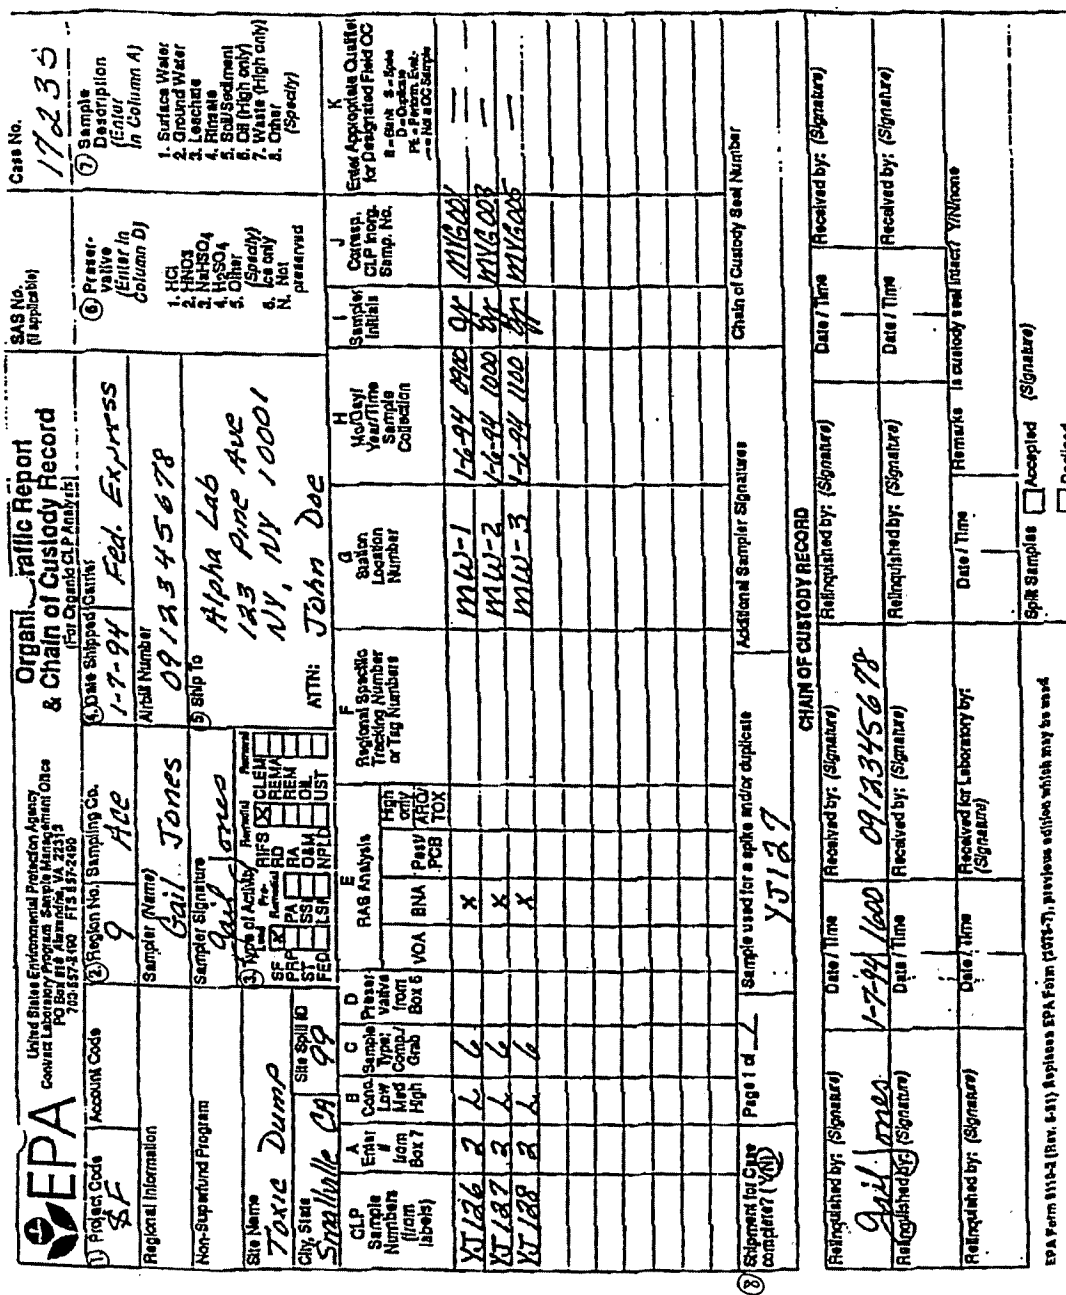 EPA
United States Environmental Protection Agency
Contract Laboratory Program Sample Management Office
PO Box 818 Alexandria, VA 22313
703-557-2490 FTS 557-2490
Organic Traffic Report
& Chain of Custody Record
(For Organic CLP Analysis)
SAS No.
(if applicable)
Case No.
17235
1 Project Code
SF
Account Code
Regional Information
Non-Superfund Program
Site Name
Toxic Dump
City, State
Smallville CA
Site Spill ID
99
2 Region No.
9
Sampling Co.
Ace
Sampler (Name)
Gail Jones
Sampler Signature
Gail Jones
3 Type of Activity
Lead
SF X
PRP
ST
FED
Pre-Remedial
PA
SSI
LSI
Remedial
RIFS X
RD
RA
O&M
NPLD
Removal
CLEM
REMA
REM
OIL
UST
4 Date Shipped
1-7-94
Carrier
Fed. Express
Airbill Number
0912345678
5 Ship To
Alpha Lab
123 Pine Ave
NY, NY 10001
ATTN: John Doe
6 Preservative
(Enter in
Column D)
1. HCl
2. HNO3
3. NaHSO4
4. H2SO4
5. Other
(Specify)
6. Ice only
N. Not
preserved
7 Sample
Description
(Enter
in Column A)
1. Surface Water
2. Ground Water
3. Leachate
4. Rinsate
5. Soil/Sediment
6. Oil (High only)
7. Waste (High only)
8. Other
(Specify)
CLP
Sample
Numbers
(from
labels)
A
Enter
#
from
Box 7
B
Conc.
Low
Med
High
C
Sample
Type:
Comp./
Grab
D
Preservative
from
Box 6
E
RAS Analysis
VOA
BNA
Pest/
PCB
High
only
ARO/
TOX
F
Regional Specific
Tracking Number
or Tag Numbers
G
Station
Location
Number
H
Mo/Day/
Year/Time
Sample
Collection
I
Sampler
Initials
J
Corresp.
CLP Inorg.
Samp. No.
K
Enter Appropriate Qualifier
for Designated Field QC
B = Blank S = Spike
D = Duplicate
PE = Perform. Eval.
— = Not a QC Sample
YJ126 2 L G X MW-1 1-6-94 0900 gr MYG001 —
YJ127 2 L G X MW-2 1-6-94 1000 gr MYG003 —
YJ128 2 L G X MW-3 1-6-94 1100 gr MYG005 —
8 Shipment for Case
complete? (Y/N)
Page 1 of 1
Sample used for a spike and/or duplicate
YJ127
Additional Sampler Signatures
Chain of Custody Seal Number
CHAIN OF CUSTODY RECORD
Relinquished by: (Signature)
Gail Jones
Date / Time
1-7-94 1600
Received by: (Signature)
0912345678
Relinquished by: (Signature)
Date / Time
Received by: (Signature)
Relinquished by: (Signature)
Date / Time
Received by: (Signature)
Relinquished by: (Signature)
Date / Time
Received by: (Signature)
Relinquished by: (Signature)
Date / Time
Received for Laboratory by:
(Signature)
Date / Time
Remarks Is custody seal intact? Y/N/none
EPA Form 9110-2 (Rev. 5-91) Replaces EPA Form (2075-7), previous edition which may be used
Split Samples
Accepted (Signature)
Declined